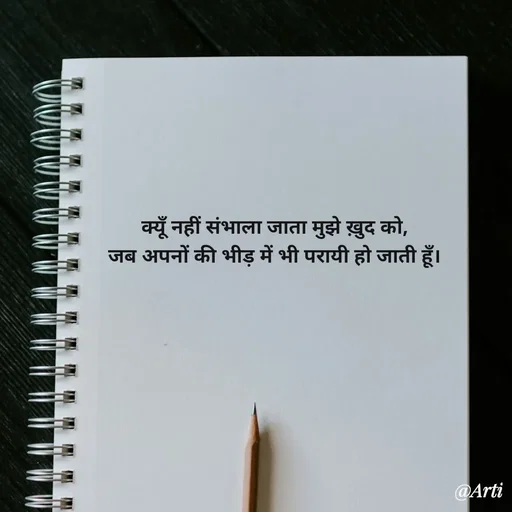 क्यूँ नहीं संभाला जाता मुझे ख़ुद को,
जब अपनों की भीड़ में भी परायी हो जाती हूँ।
@Arti